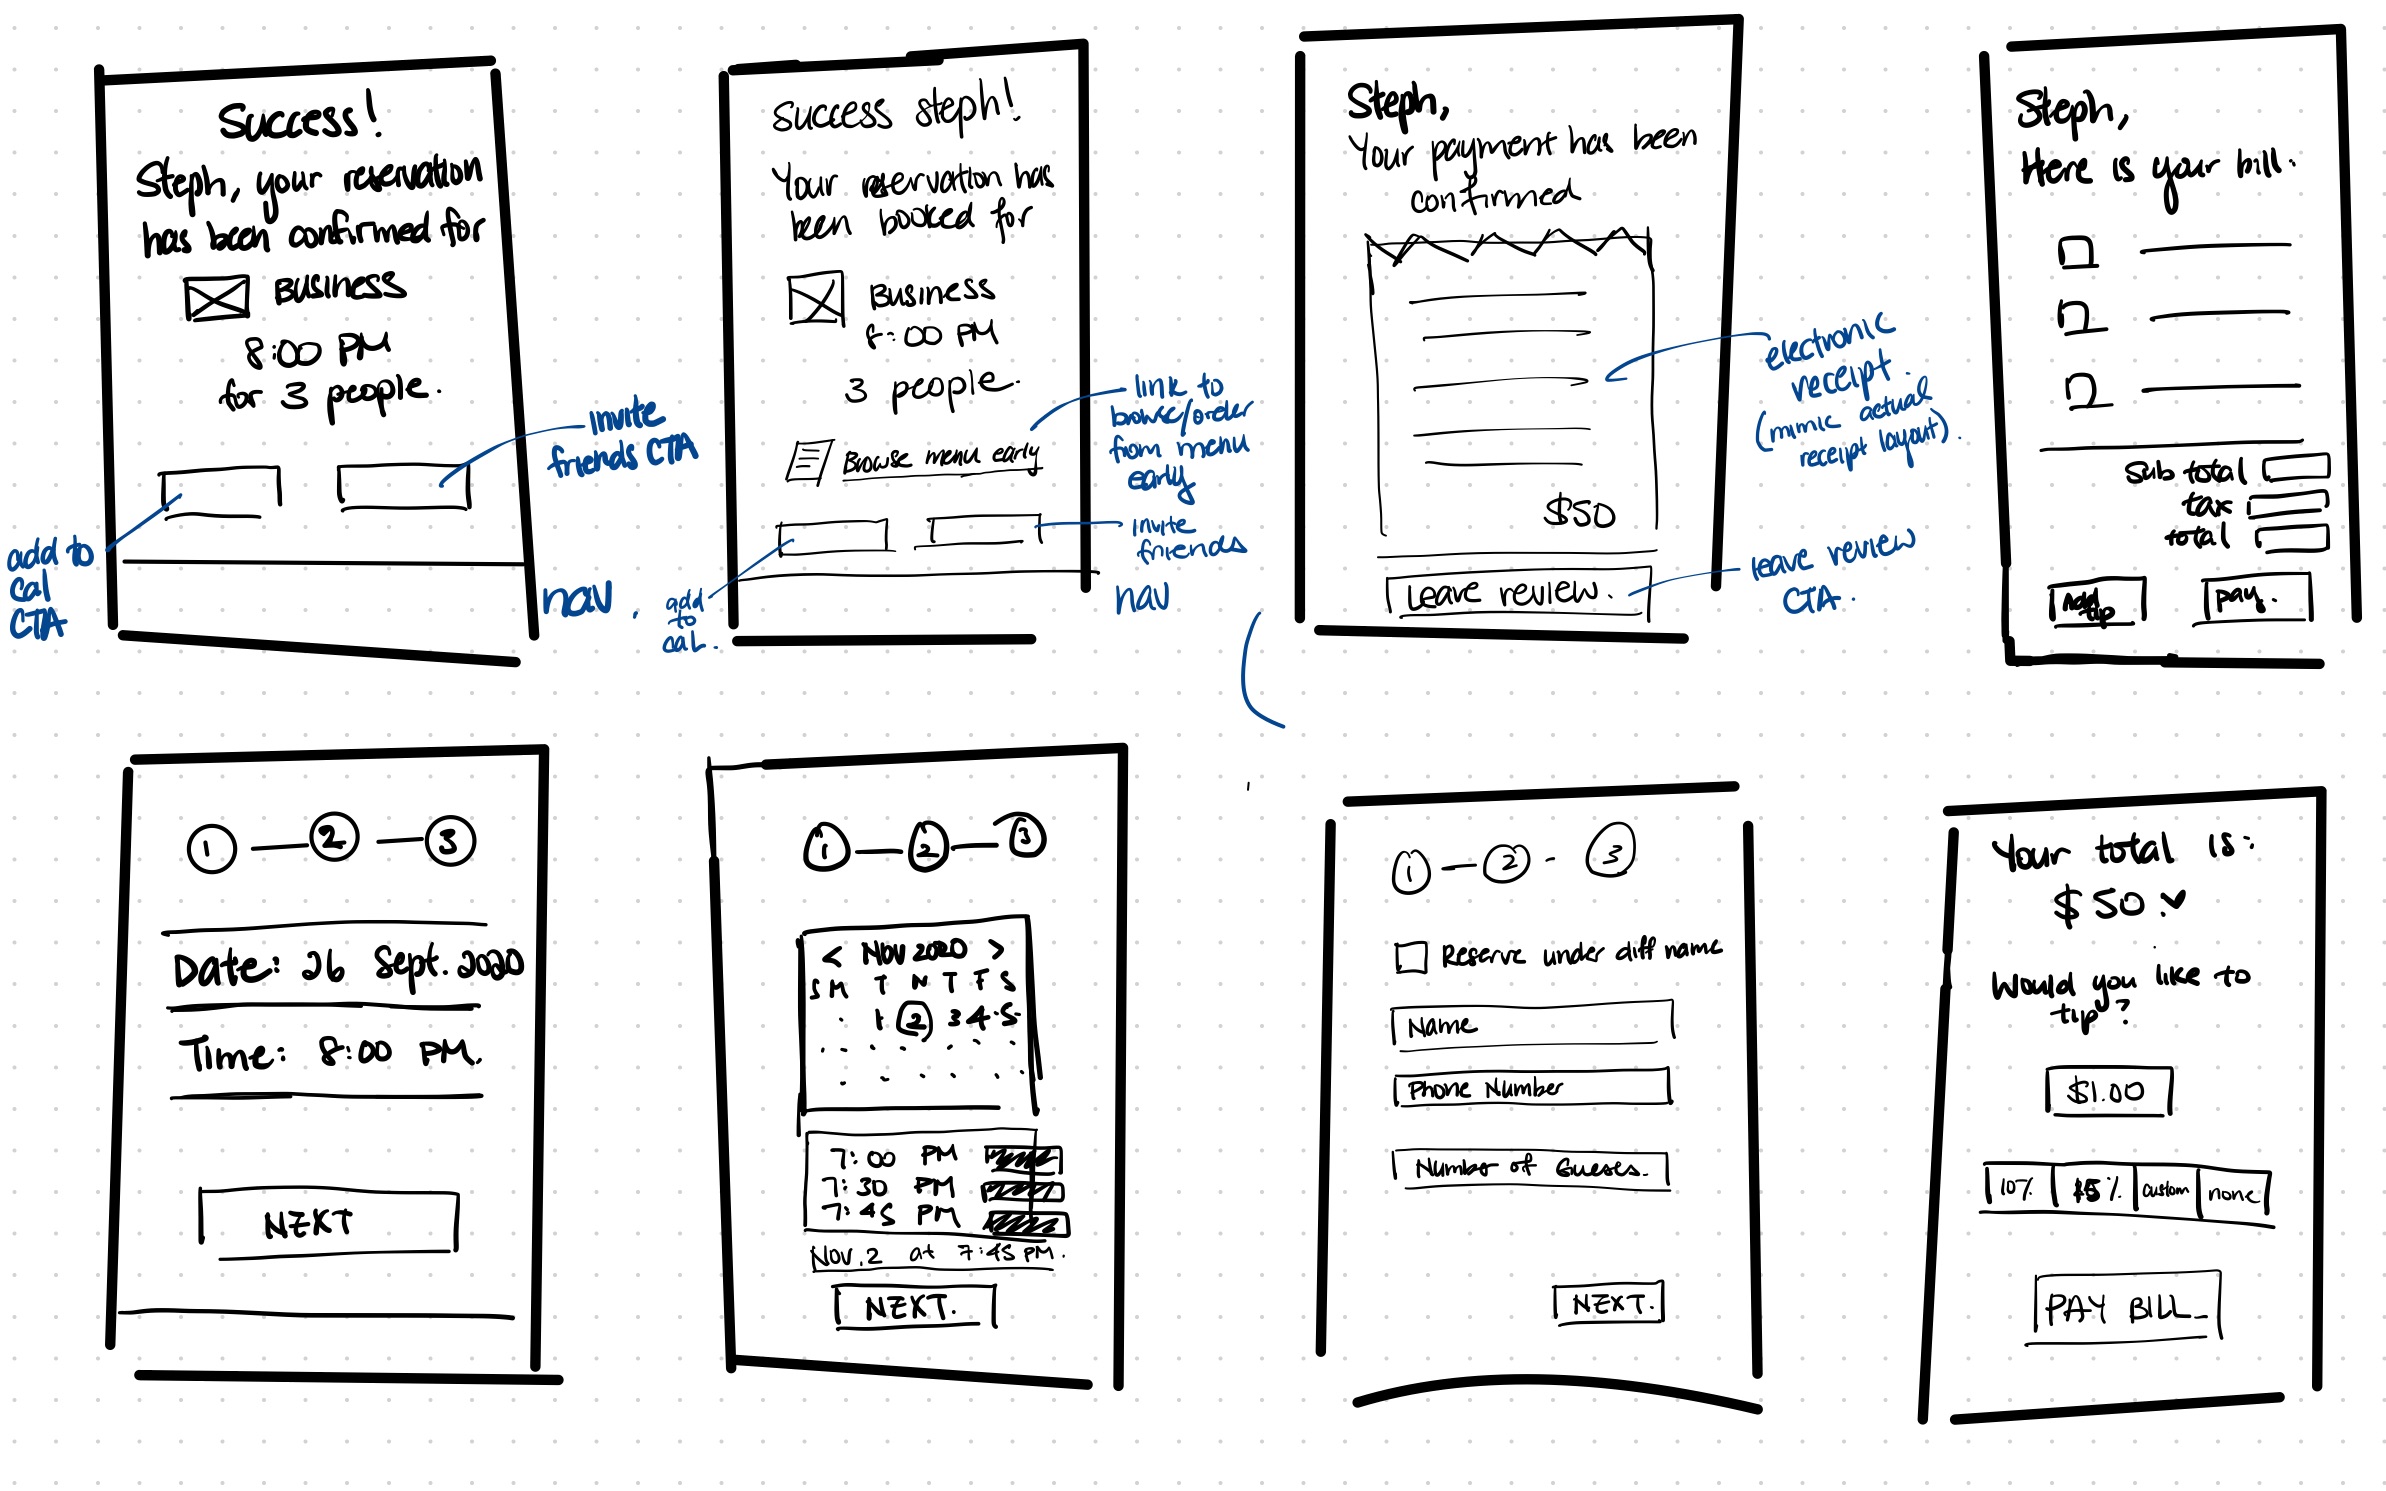 Success!
Steph, your reservation
has been confirmed for
BUSINESS
8:00 PM
for 3 people.
invite
friends CTA
add to
cal
CTA
nav
Success Steph!
Your reservation has
been booked for
BUSINESS
8:00 PM
3 people.
Browse menu early
link to
browse/order
from menu
early
invite
friends
add
to
cal.
nav
Steph,
Your payment has been
confirmed
$50
Leave review.
electronic
receipt.
(mimic actual
receipt layout).
leave review
CTA.
Steph,
Here is your bill.
Sub total
tax
total
Add
tip
pay.
1 2 3
Date: 26 Sept. 2020
Time: 8:00 PM.
NEXT
1 2 3
< Nov 2020 >
S M T W T F S
1 2 3 4 5
7:00 PM
7:30 PM
7:45 PM
Nov. 2 at 7:45 PM.
NEXT.
1 2 3
Reserve under diff name
Name
Phone Number
Number of Guests.
NEXT.
Your total is:
$50.
Would you like to
tip?
$1.00
10% 15% custom none
PAY BILL